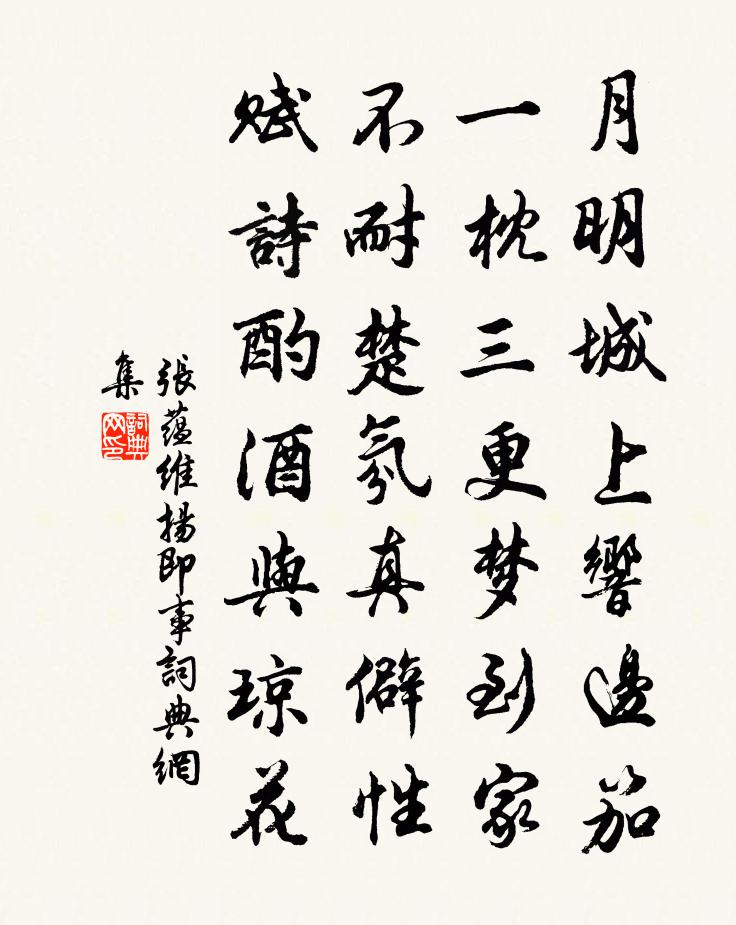 月明城上響邊笳
一枕三更梦到家
不耐楚氛真僻性
赋詩酌酒與琼花
張蕴維揚即事詞典網
集
詞典网印